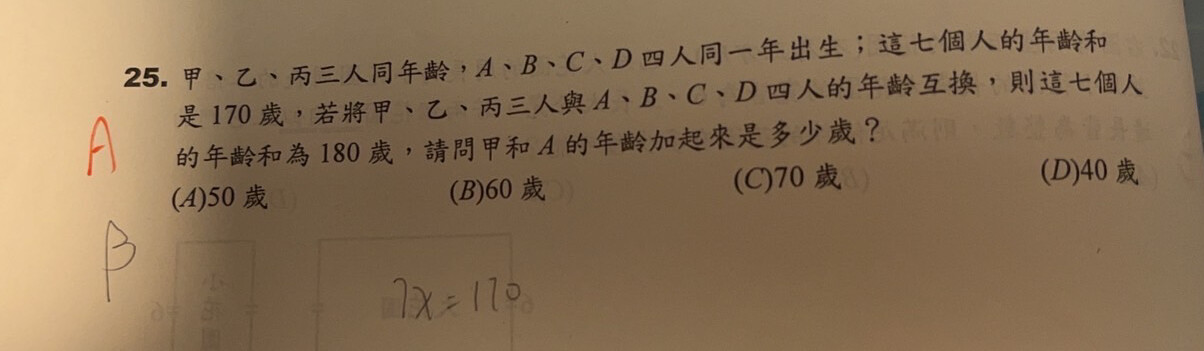 25. 甲、乙、丙三人同年齡，A、B、C、D 四人同一年出生；這七個人的年齡和
是 170 歲，若將甲、乙、丙三人與 A、B、C、D 四人的年齡互換，則這七個人
的年齡和為 180 歲，請問甲和 A 的年齡加起來是多少歲？
(A)50 歲 (B)60 歲 (C)70 歲 (D)40 歲
A
B
7x=170